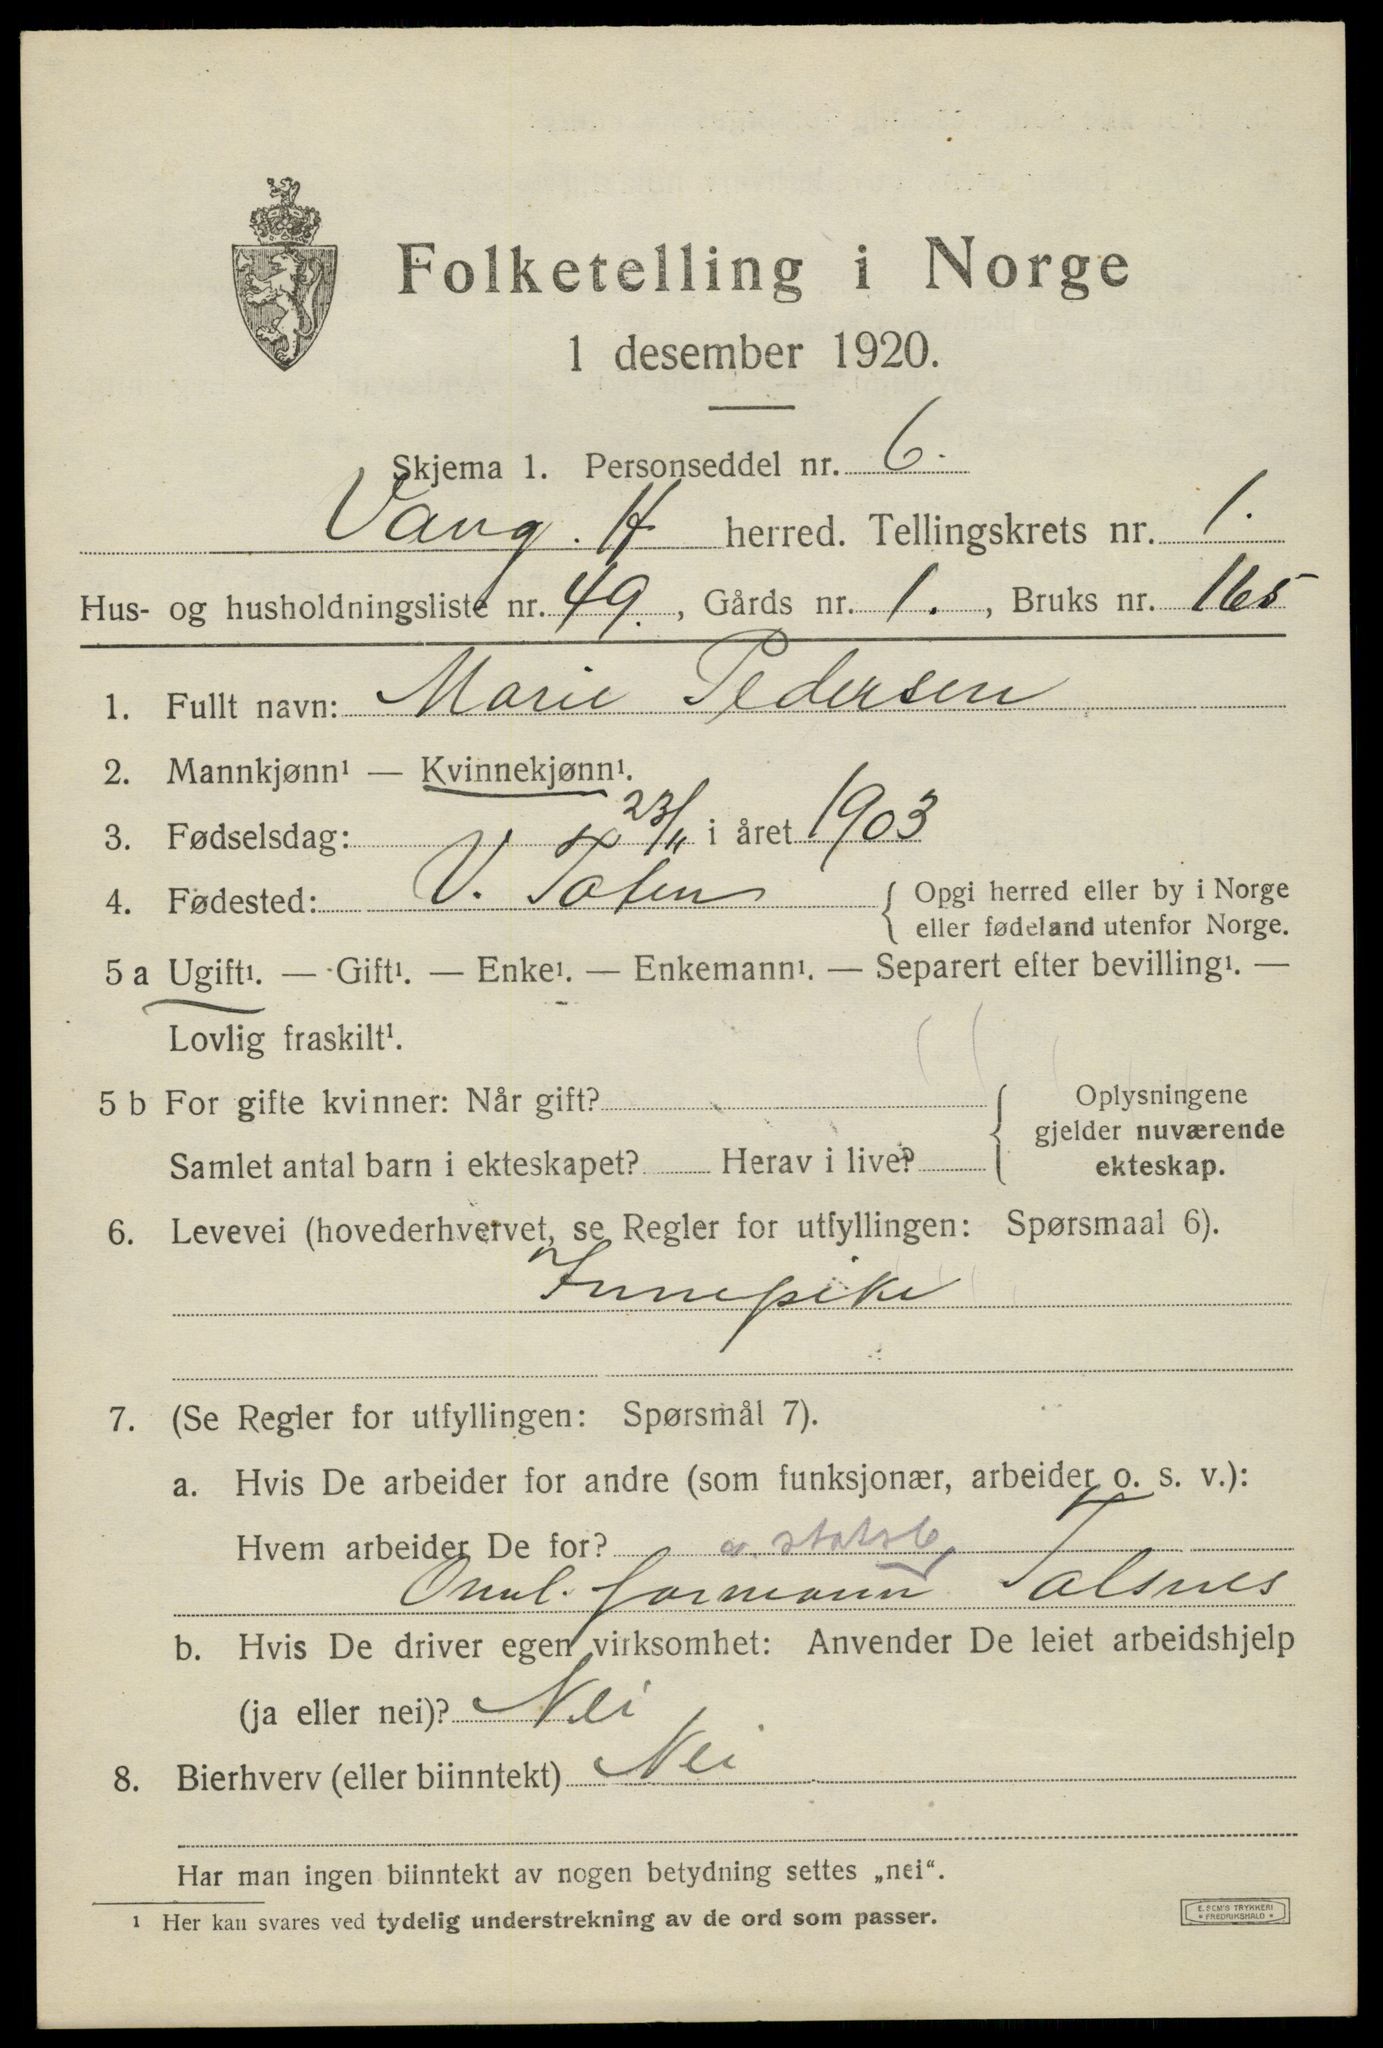 Folketelling i Norge
1 desember 1920.
Skjema 1. Personseddel nr. 6.
Vang. H herred. Tellingskrets nr. 1.
Hus- og husholdningsliste nr. 49., Gårds nr. 1., Bruks nr. 165
1. Fullt navn: Marie Pedersen
2. Mannkjønn¹ — Kvinnekjønn¹.
3. Fødselsdag: 23/11 i året 1903
4. Fødested: V. Toten { Opgi herred eller by i Norge
eller fødeland utenfor Norge.
5 a Ugift¹. — Gift¹. — Enke¹. — Enkemann¹. — Separert efter bevilling¹. —
Lovlig fraskilt¹.
5 b For gifte kvinner: Når gift?
Samlet antal barn i ekteskapet? Herav i live?
Oplysningene
gjelder nuværende
ekteskap.
6. Levevei (hovederhvervet, se Regler for utfyllingen: Spørsmaal 6).
Innepike
7. (Se Regler for utfyllingen: Spørsmål 7).
a. Hvis De arbeider for andre (som funksjonær, arbeider o. s. v.):
Hvem arbeider De for?
formann Tolsnes
b. Hvis De driver egen virksomhet: Anvender De leiet arbeidshjelp
(ja eller nei)? Nei
8. Bierhverv (eller biinntekt) Nei
Har man ingen biinntekt av nogen betydning settes „nei“.
¹ Her kan svares ved tydelig understrekning av de ord som passer.
E. SEM'S TRYKKERI
• FREDRIKSHALD •